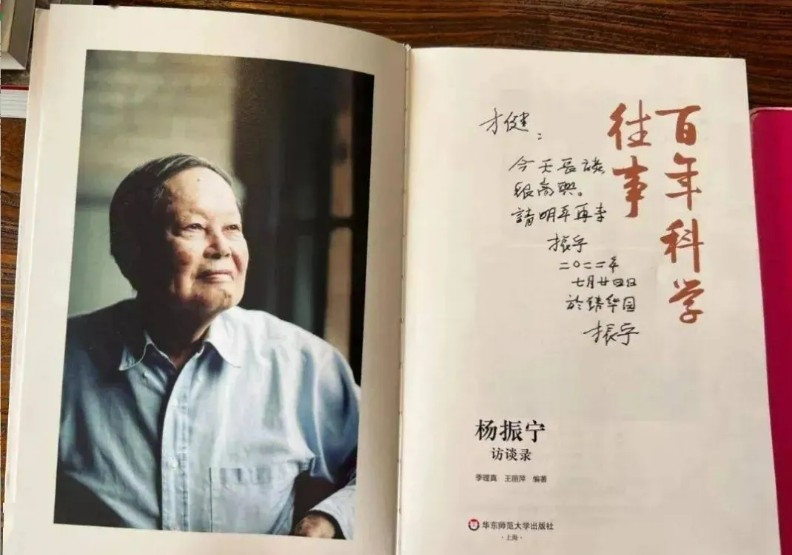 百年科学
往事
才健：
今天長談
很高興。
請明年再來
振宁
二〇二二年
七月廿四日
於清华园
振宁
杨振宁
访谈录
季理真 王丽萍 编著
华东师范大学出版社
·上海·